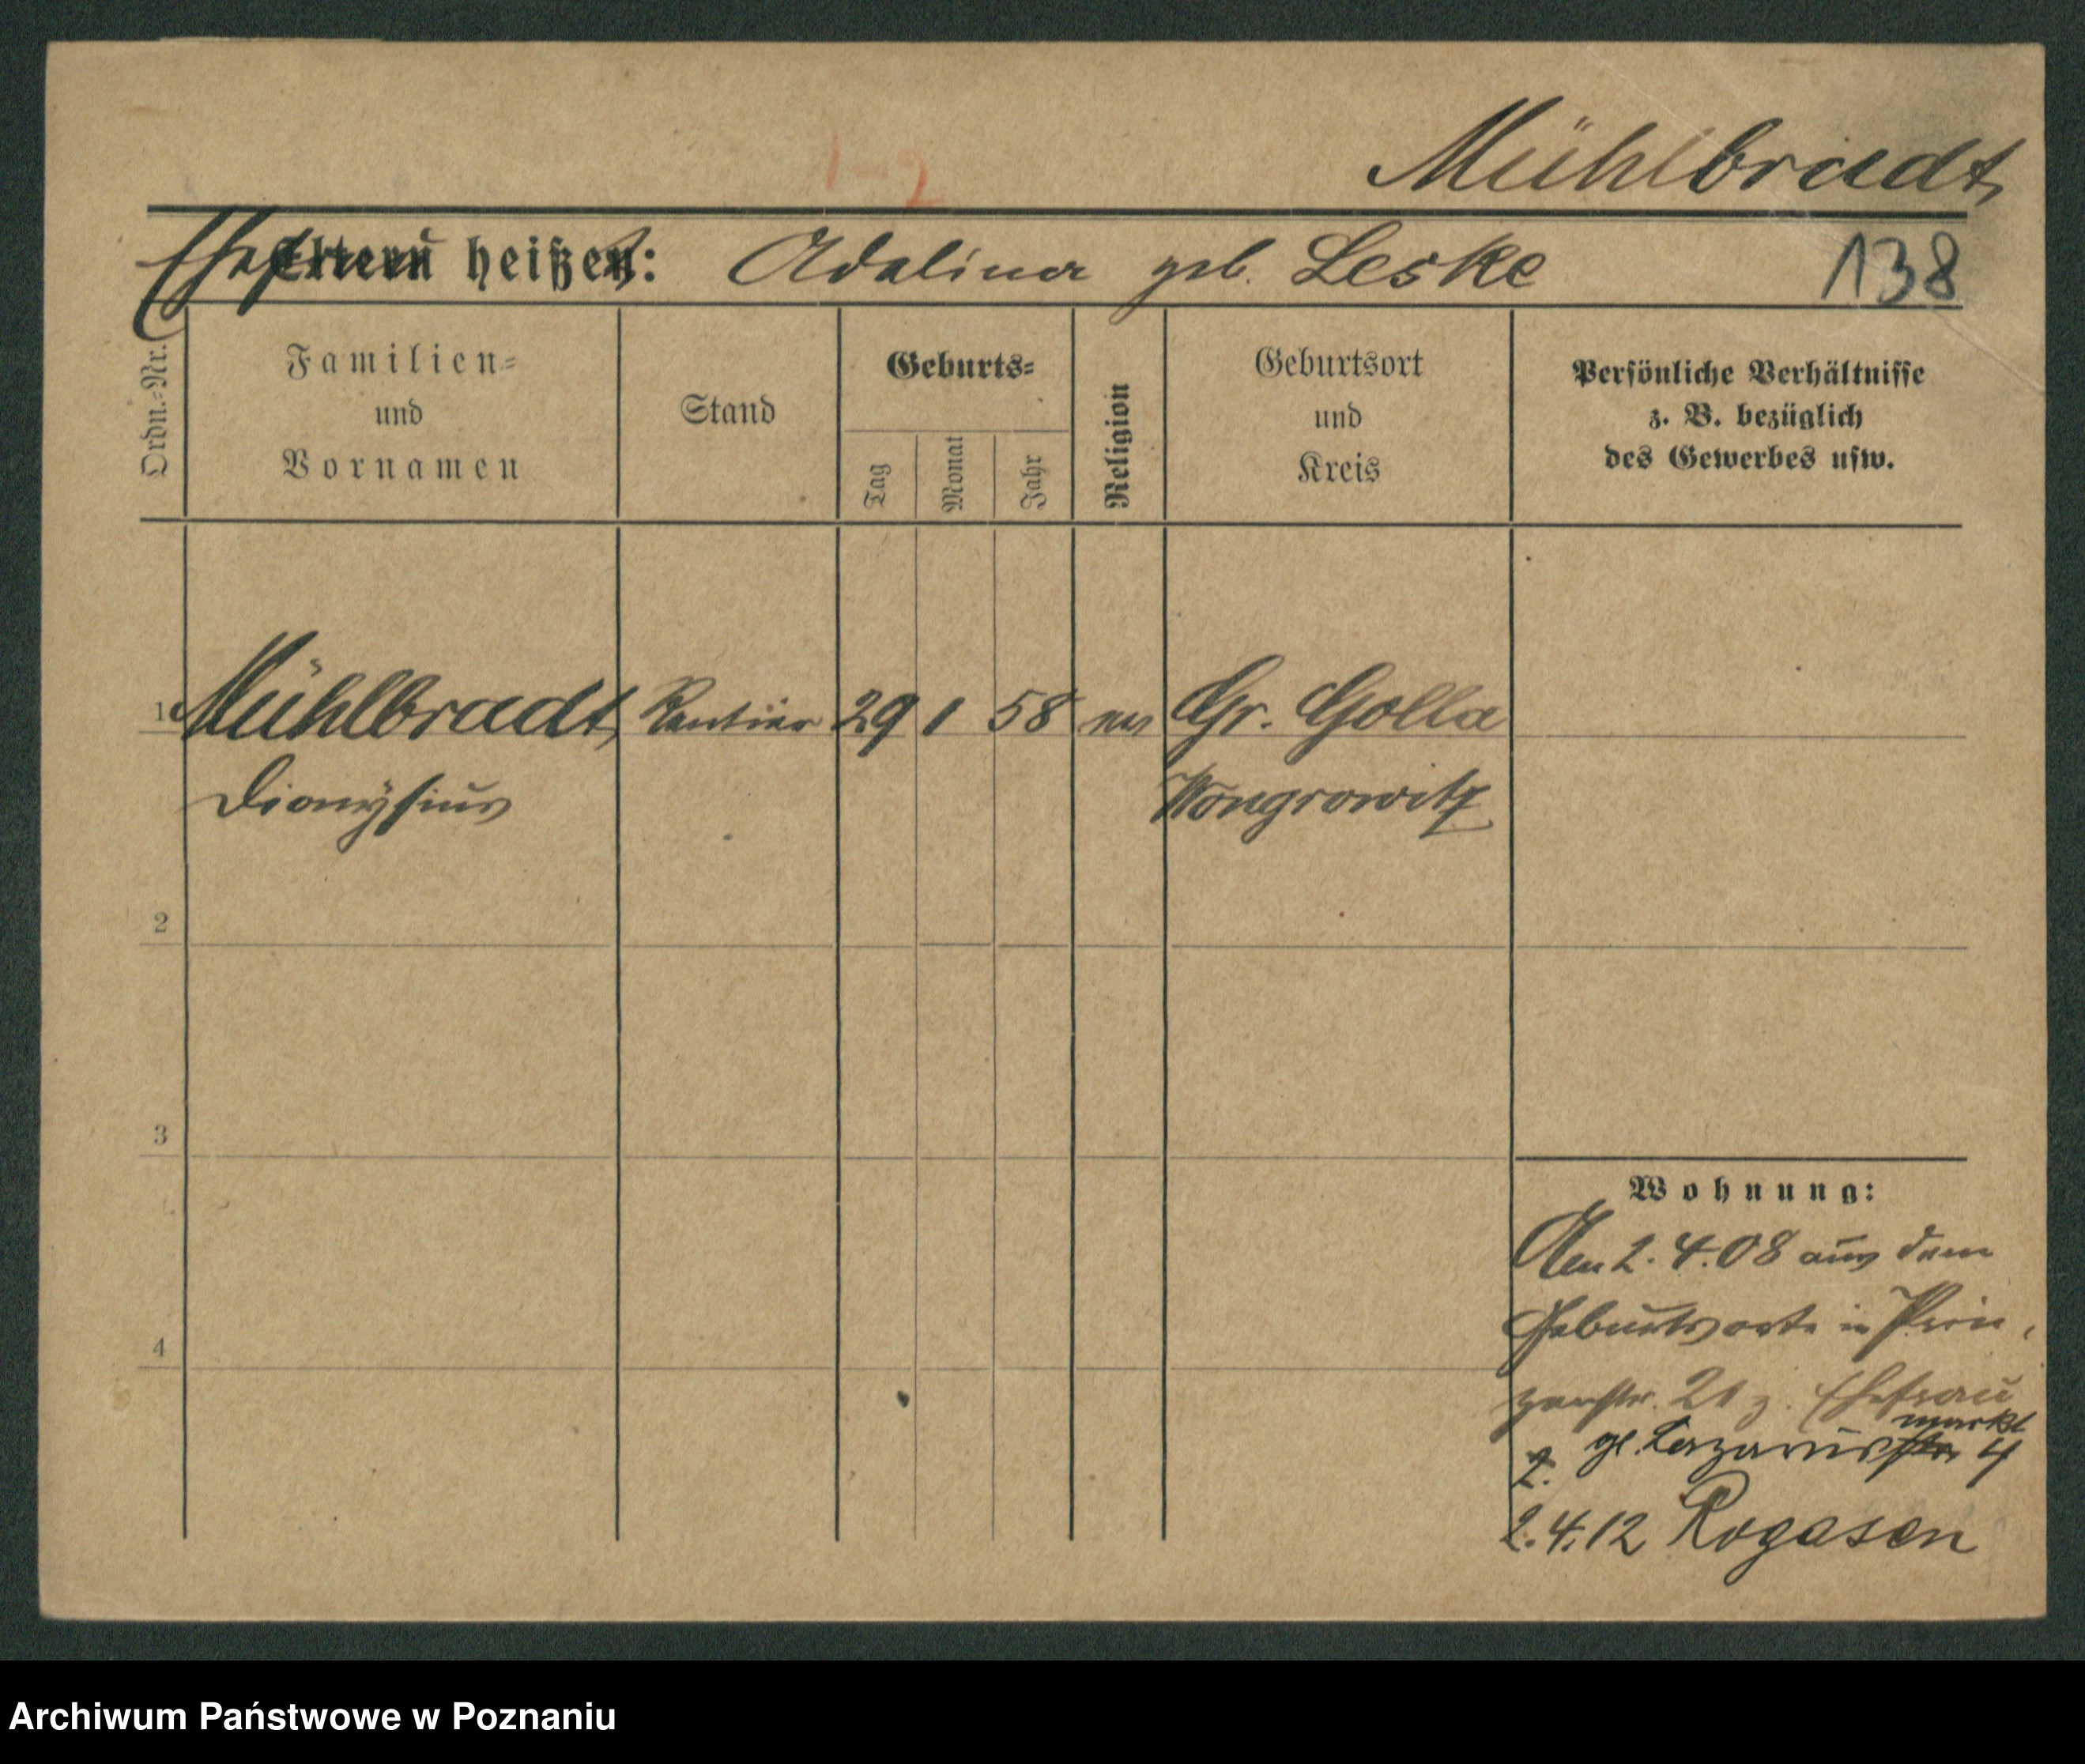 1-2
Mühlbradt,
Ehefrau heißt: Adeline geb. Leske
138
Ordn.-Nr.
Familien-
und
Vornamen
Stand
Geburts-
Tag
Monat
Jahr
Religion
Geburtsort
und
Kreis
Persönliche Verhältnisse
z. B. bezüglich
des Gewerbes usw.
1 Mühlbradt, Rentier 29 1 58 ev Gr. Golla
Dionysius Wongrowitz
2
3
4
Wohnung:
Am 2. 4. 08 aus dem
Geburtsorte in Prin-
zenstr. 21 z. Ehefrau
markt
z. gl. Lazarusstr. 4
2.4.12 Rogasen
Archiwum Państwowe w Poznaniu